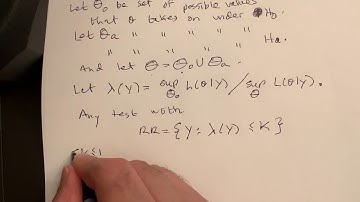 Let Θ₀ be set of possible values
that θ takes on under H₀.
Let Θa " " " " "
" " " " " Ha.
And let Θ = Θ₀ ∪ Θa.
Let λ(y) = sup Θ₀ L(θ|y) / sup Θ L(θ|y).
Any test with
RR = {y : λ(y) ≤ K}